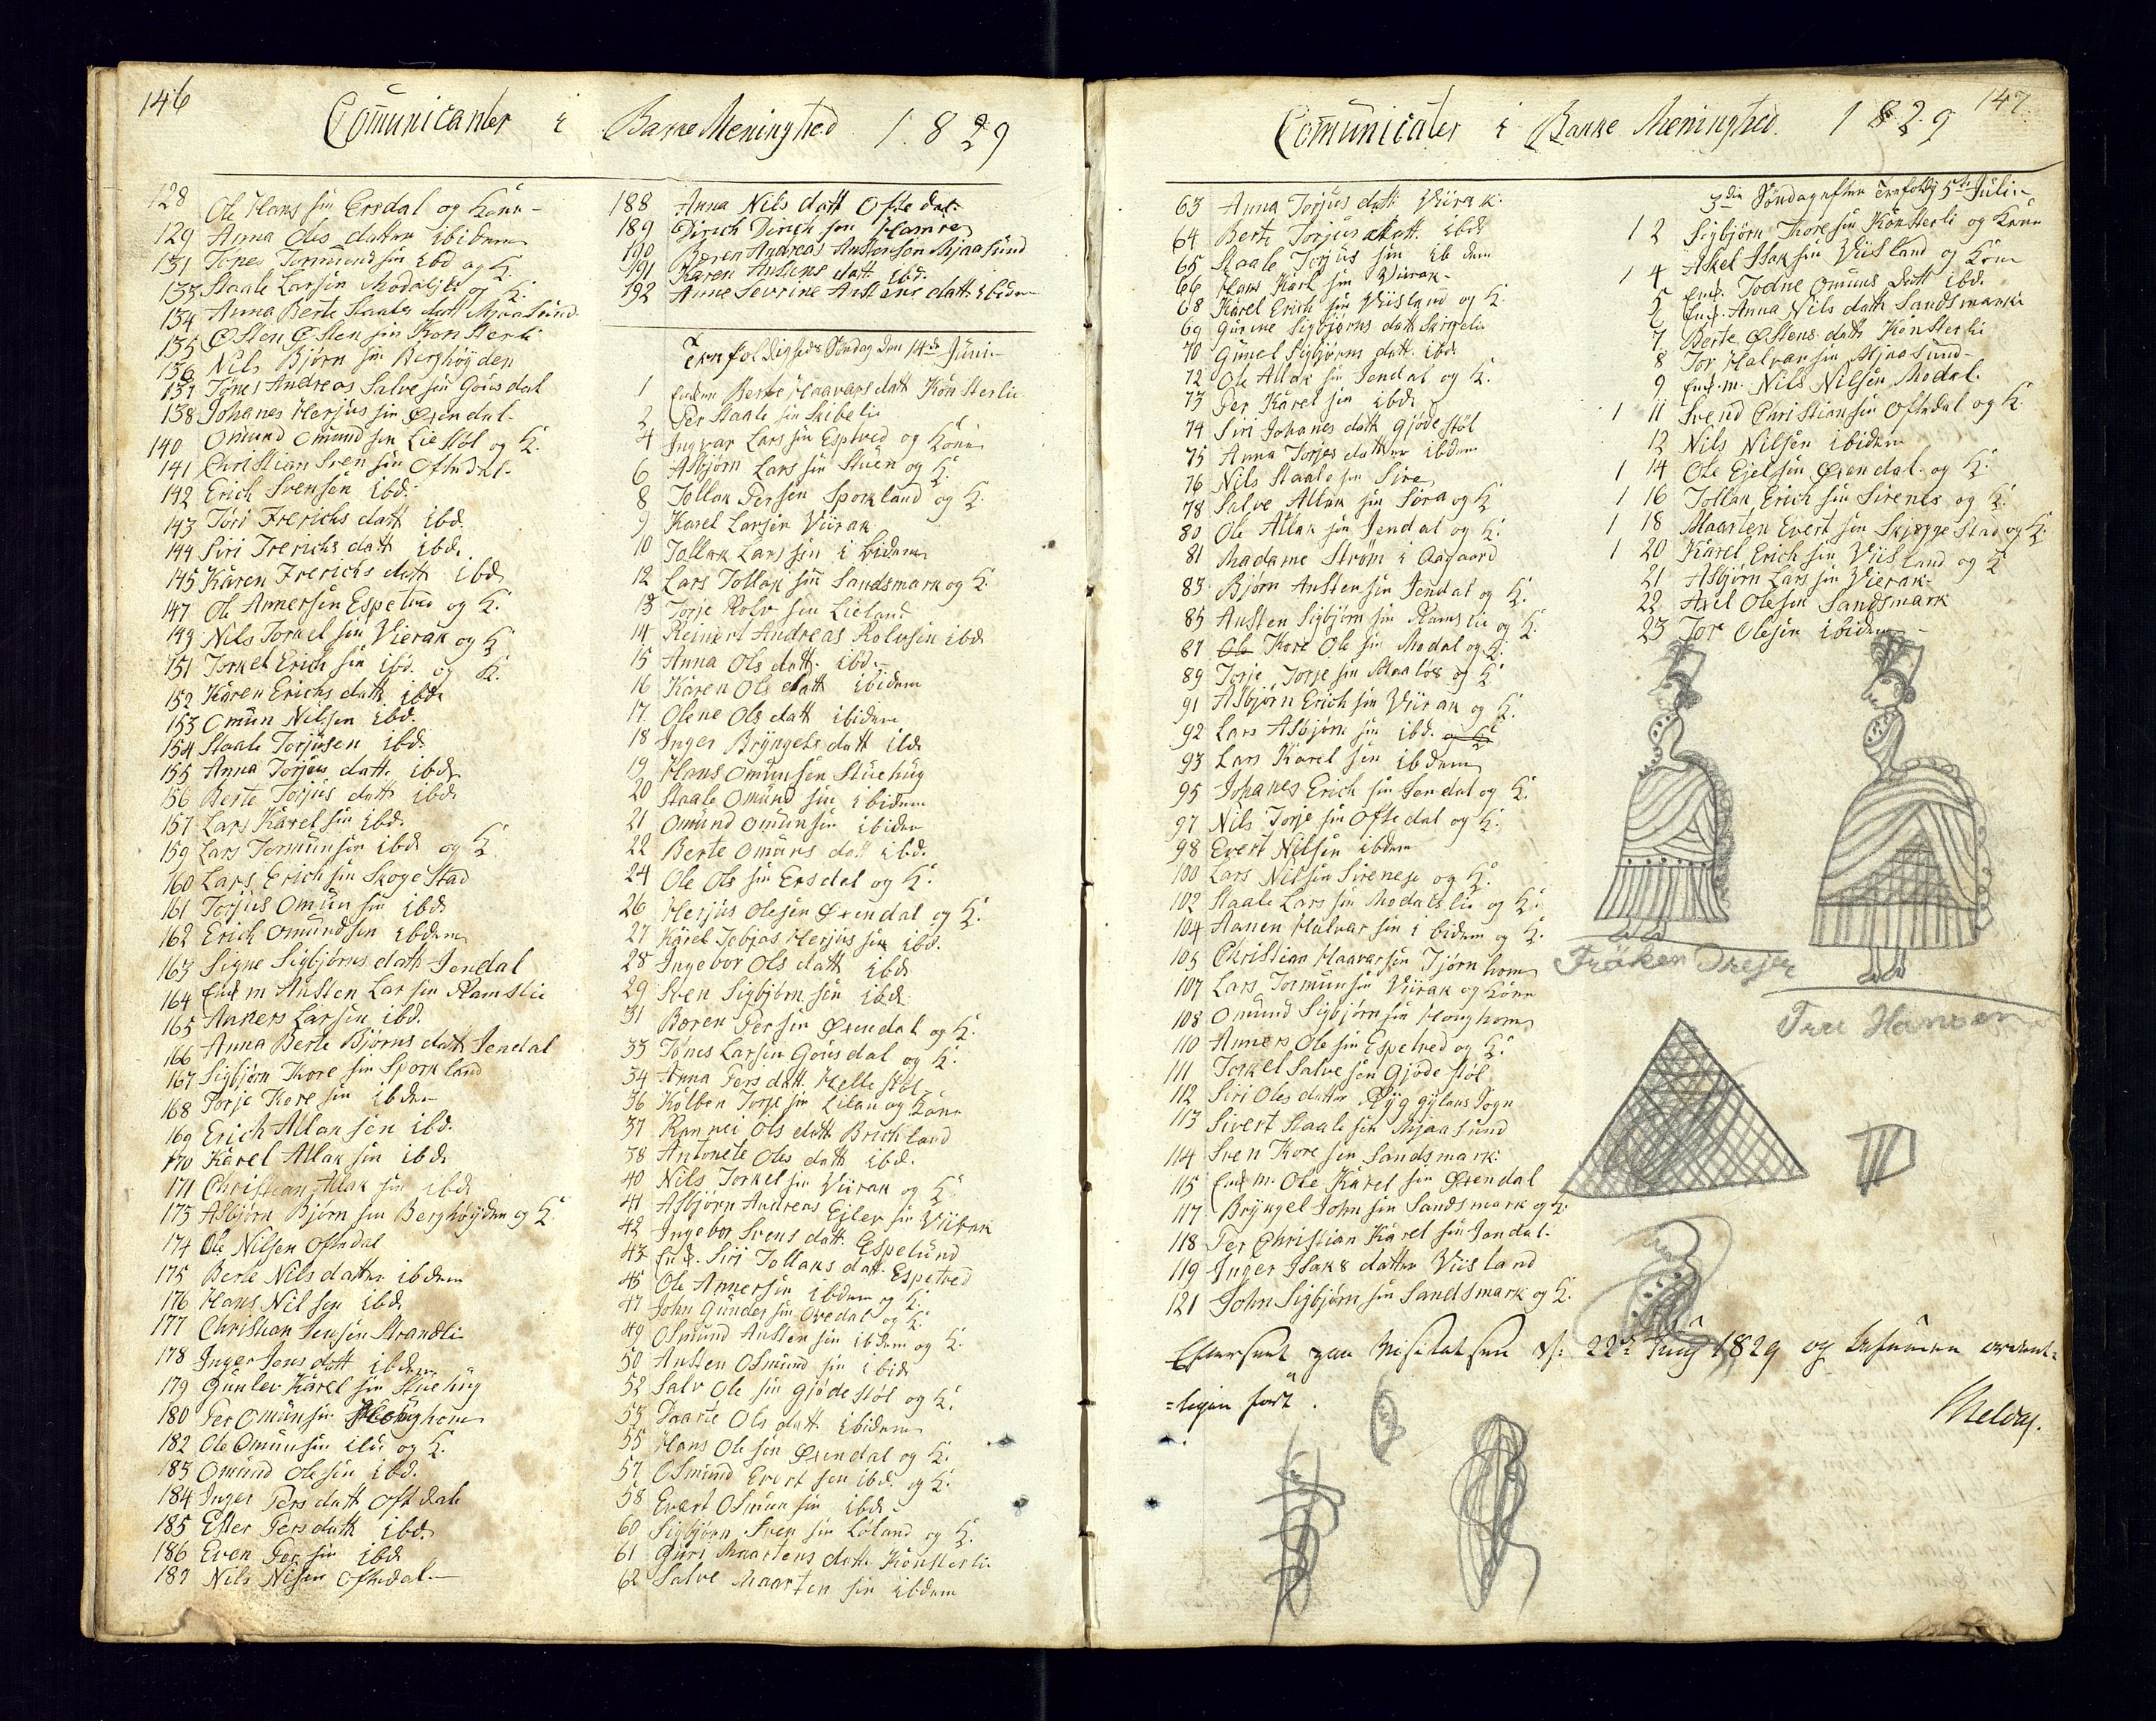 146
Comunicanter i Bakke Meninghed 1829
128 Ole Hans sin Ersdal og Kone
129 Anna Ols datter ibidem
131 Tønes Tormund sin ibd og K.
133 Staale Larsin Modalsli og K.
134 Anna Berte Staales datt Mjaasund
135 Østen Østen sin Konsterli
136 Nils Bjørn sin Berghøyden
137 Tønes Andreas Salve sin Gousdal
138 Johanes Herjus sin Øxendal
140 Omund Omund sin Liestøl og K.
141 Christian Sven sin Oftedal
142 Erich Svensen ibd.
143 Tori Frerichs datt ibd.
144 Siri Frerichs datt ibd.
145 Karen Frerichs datt ibd
147 Ole Annersin Espetved og K.
149 Nils Torkel sin Vierak og K.
151 Torkel Erich sin ibd. og K.
152 Karen Erichs datt ibd
153 Omun Nilsen ibd.
154 Staale Torjusen ibd
155 Anna Torjus datt. ibd
156 Berte Torjus datt ibd
157 Lars Karel sin ibd.
159 Lars Tormunsin ibd og K
160 Lars Erich sin Skogestad
161 Torjus Omun sin ibd
162 Erich Omundsen ibdem
163 Signe Sigbjørns datt Jendal
164 Enk m Austen Lar sin Ramslie
165 Ankers Larsen ibd.
166 Anna Berte Bjørns datt Jendal
167 Sigbjørn Thore sin Sporkland
168 Torje Tore sin ibdem
169 Erich Atlak sen ibd.
170 Karel Atlak sin ibd
171 Christian Atlak sin ibd
173 Asbjørn Bjørn sin Berghøyden og K.
174 Ole Nilsen Oftedal
175 Berte Nils datter ibdem
176 Hans Nilsen ibd
177 Christian Jensen Strandli
178 Inger Jens datt ibdem
179 Gunlev Karel sin Stuehug
180 Per Omunsin Houghom
182 Ole Omunsin ibd og K.
183 Omund Olesin ibd.
184 Inger Pers datt Oftedal
185 Ester Pers datt ibd.
186 Even Per sin ibd
187 Nils Nilsen Oftedal
188 Anna Nils datt Oftedal
189 Dirich Dirich sen Hamre
190 Bæren Andreas Austenson Mjaasund
191 Karen Austens datt ibd.
192 Anne Sevrine Austens datt ibidem
Trefoldigheds Søndag den 14de Juni
1 Enken Berte Haavars datt Konsterlie
2 Per Staale sin Skibeli
4 Ingvar Lars sin Espetved og Kone
6 Asbjørn Lars sin Stuen og K.
8 Tollak Persen Sporkland og K.
9 Karel Larsin Viirak
10 Tollak Lars sin ibidem
12 Lars Tollak sin Sandsmark og K
13 Torje Rolv sin Lieland
14 Reinert Andreas Rolvsin ibd
15 Anna Ols datt. ibd.
16 Karen Ols datt ibidem
17 Olene Ols datt ibidem
18 Inger Bryngels datt ibd
19 Hans Omunsen Stuehug
20 Staale Omund sin ibidem
21 Omund Omunsin ibidem
22 Berte Omuns datt ibd.
24 Ole Ols sin Ersdal og K.
26 Herjus Olesen Øxendal og K.
27 Karel Tobjas Herjus sin ibd.
28 Ingebor Ols datt ibd
29 Sven Sigbjørn sin ibd
31 Bæren Persin Øxendal og K.
33 Tønes Larsin Gousdal og K.
34 Anna Pers datt. Hellestøl
36 Kolben Torje sin Lilan og Kone
37 Rannei Ols datt Brichland
38 Antonete Oles datt ibd.
40 Nils Torkel sin Viirak og K.
41 Asbjørn Andreas Ejler sin Viirak
42 Ingebor Svens datt. Espelund
43 Enk. Siri Tollaks datt. Espetved
45 Ole Annersin ibdem og K.
47 John Gunder sin Ovedal og K.
49 Osmund Austen sin ibdem og K.
50 Austen Osmund sin ibid
52 Salv Ole sin Gjødestøl og K.
53 Daarte Ols datt ibidem
55 Hans Ole sin Øxendal og K.
57 Osmund Evert sen ibd. og K.
58 Evert Osmun sin ibd
60 Sigbjørn Sven sin Løland og K.
61 Guri Maartens datt. Konsterlie
62 Salve Maarten sin ibdem
147
Comunicater i Bakke Meninghed. 1829
63 Anna Torjus datt Viirak
64 Berte Torjus datt. ibd
65 Staale Torjus sin ibdem
66 Hans Karl sin Viirak
68 Karel Erich sin Viisland og K.
69 Gurine Sigbjørns datt Skigeli
70 Gunel Sigbjørns datt. ibd
72 Ole Atlak sin Jendal og K.
73 Per Karel sin ibd
74 Siri Johanes datt Gjødestøl
75 Anna Torjes datter ibdem
76 Nils Staale sin Sire
78 Salve Atlak sin Sira og K
80 Ole Atlak sin Jendal og K.
81 Madame Strøm i Aagaard
83 Bjørn Austensin Jendal og K.
85 Austen Sigbjørn sin Ramslie og K.
87 Ole Tore Ole sin Modal og K.
89 Torje Torje sin Maalos og K
91 Asbjørn Erich sin Viirak og K.
92 Lars Asbjørn sin ibd. og K
93 Lars Karel sin ibdem
95 Johanes Erich sin Jendal og K.
97 Nils Torje sin Oftedal og K.
98 Evert Nilsen ibdem
100 Lars Nilsen Sirenese og K.
102 Staale Lars sin Modalslie og K.
104 Aanen Halvar sin ibidem og K.
105 Christian Haavarsin Tjørnhom
107 Lars Tormunsin Viirak og Kone
108 Omund Sigbjørnsin Houghom
110 Anners Ole sin Espetved og K.
111 Torkel Salve sen Gjødestøl
112 Siri Oles datter Øygylans Sogn
113 Sivert Staale sin Mjaasund
114 Sven Tore sen Sandsmark
115 Enk m. Ole Karel sin Øxendal
117 Bryngel John sin Sandsmark og K.
118 Per Christian Karel sin Jendal
119 Inger Isaks datter Viisland
121 John Sigbjørn sin Sandsmark og K.
3die Søndag efter Trefoldigh 5te Juli
1 2 Sigbjørn Thoresin Konsterli og Kone
1 4 Askel Isak sin Viisland og Kone
5 Enk. Todne Omuns datt ibd.
Enk. Anna Nils datt Sandsmark
7 Berte Østens datt Konsterli
8 Tor Halvar sin Mjaasund
9 Enk. m. Nils Nilsen Modal.
1 11 Svend Christiansin Oftedal og K.
12 Nils Nilsen ibidem
1 14 Ole Ejelsin Øxendal og K.
1 16 Tollak Erich sin Sirenes og K.
1 18 Maarten Evert sin Skjeggestad og K.
1 20 Karel Erich sin Viisland og K
21 Asbjørn Lars sin Vierak
22 Axel Olesen Sandsmark
23 Tore Olesin ibidem
Fröken Drejer
Fru Hansen
Efterseet paa Visitatsen d: 22de Aug 1829 og befunden ordent=
=ligen fört.